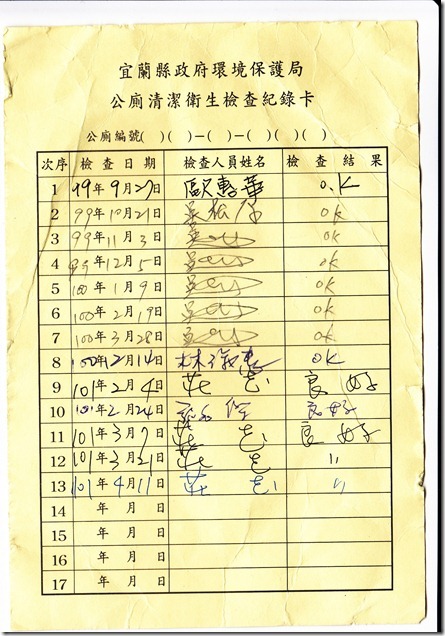 宜蘭縣政府環境保護局
公廁清潔衛生檢查紀錄卡
公廁編號( )( )－( )－( )( )( )
次序 檢查日期 檢查人員姓名 檢查結果
1 99年9月27日 O.K
2 99年10月21日 OK
3 99年11月3日 OK
4 99年12月5日 OK
5 100年1月9日 OK
6 100年2月19日 OK
7 100年3月28日 OK
8 100年12月14日 OK
9 101年2月4日 莊 良好
10 101年2月24日 良好
11 101年3月7日 莊 良好
12 101年3月21日 莊 〃
13 101年4月11日 莊 〃
14 年 月 日
15 年 月 日
16 年 月 日
17 年 月 日